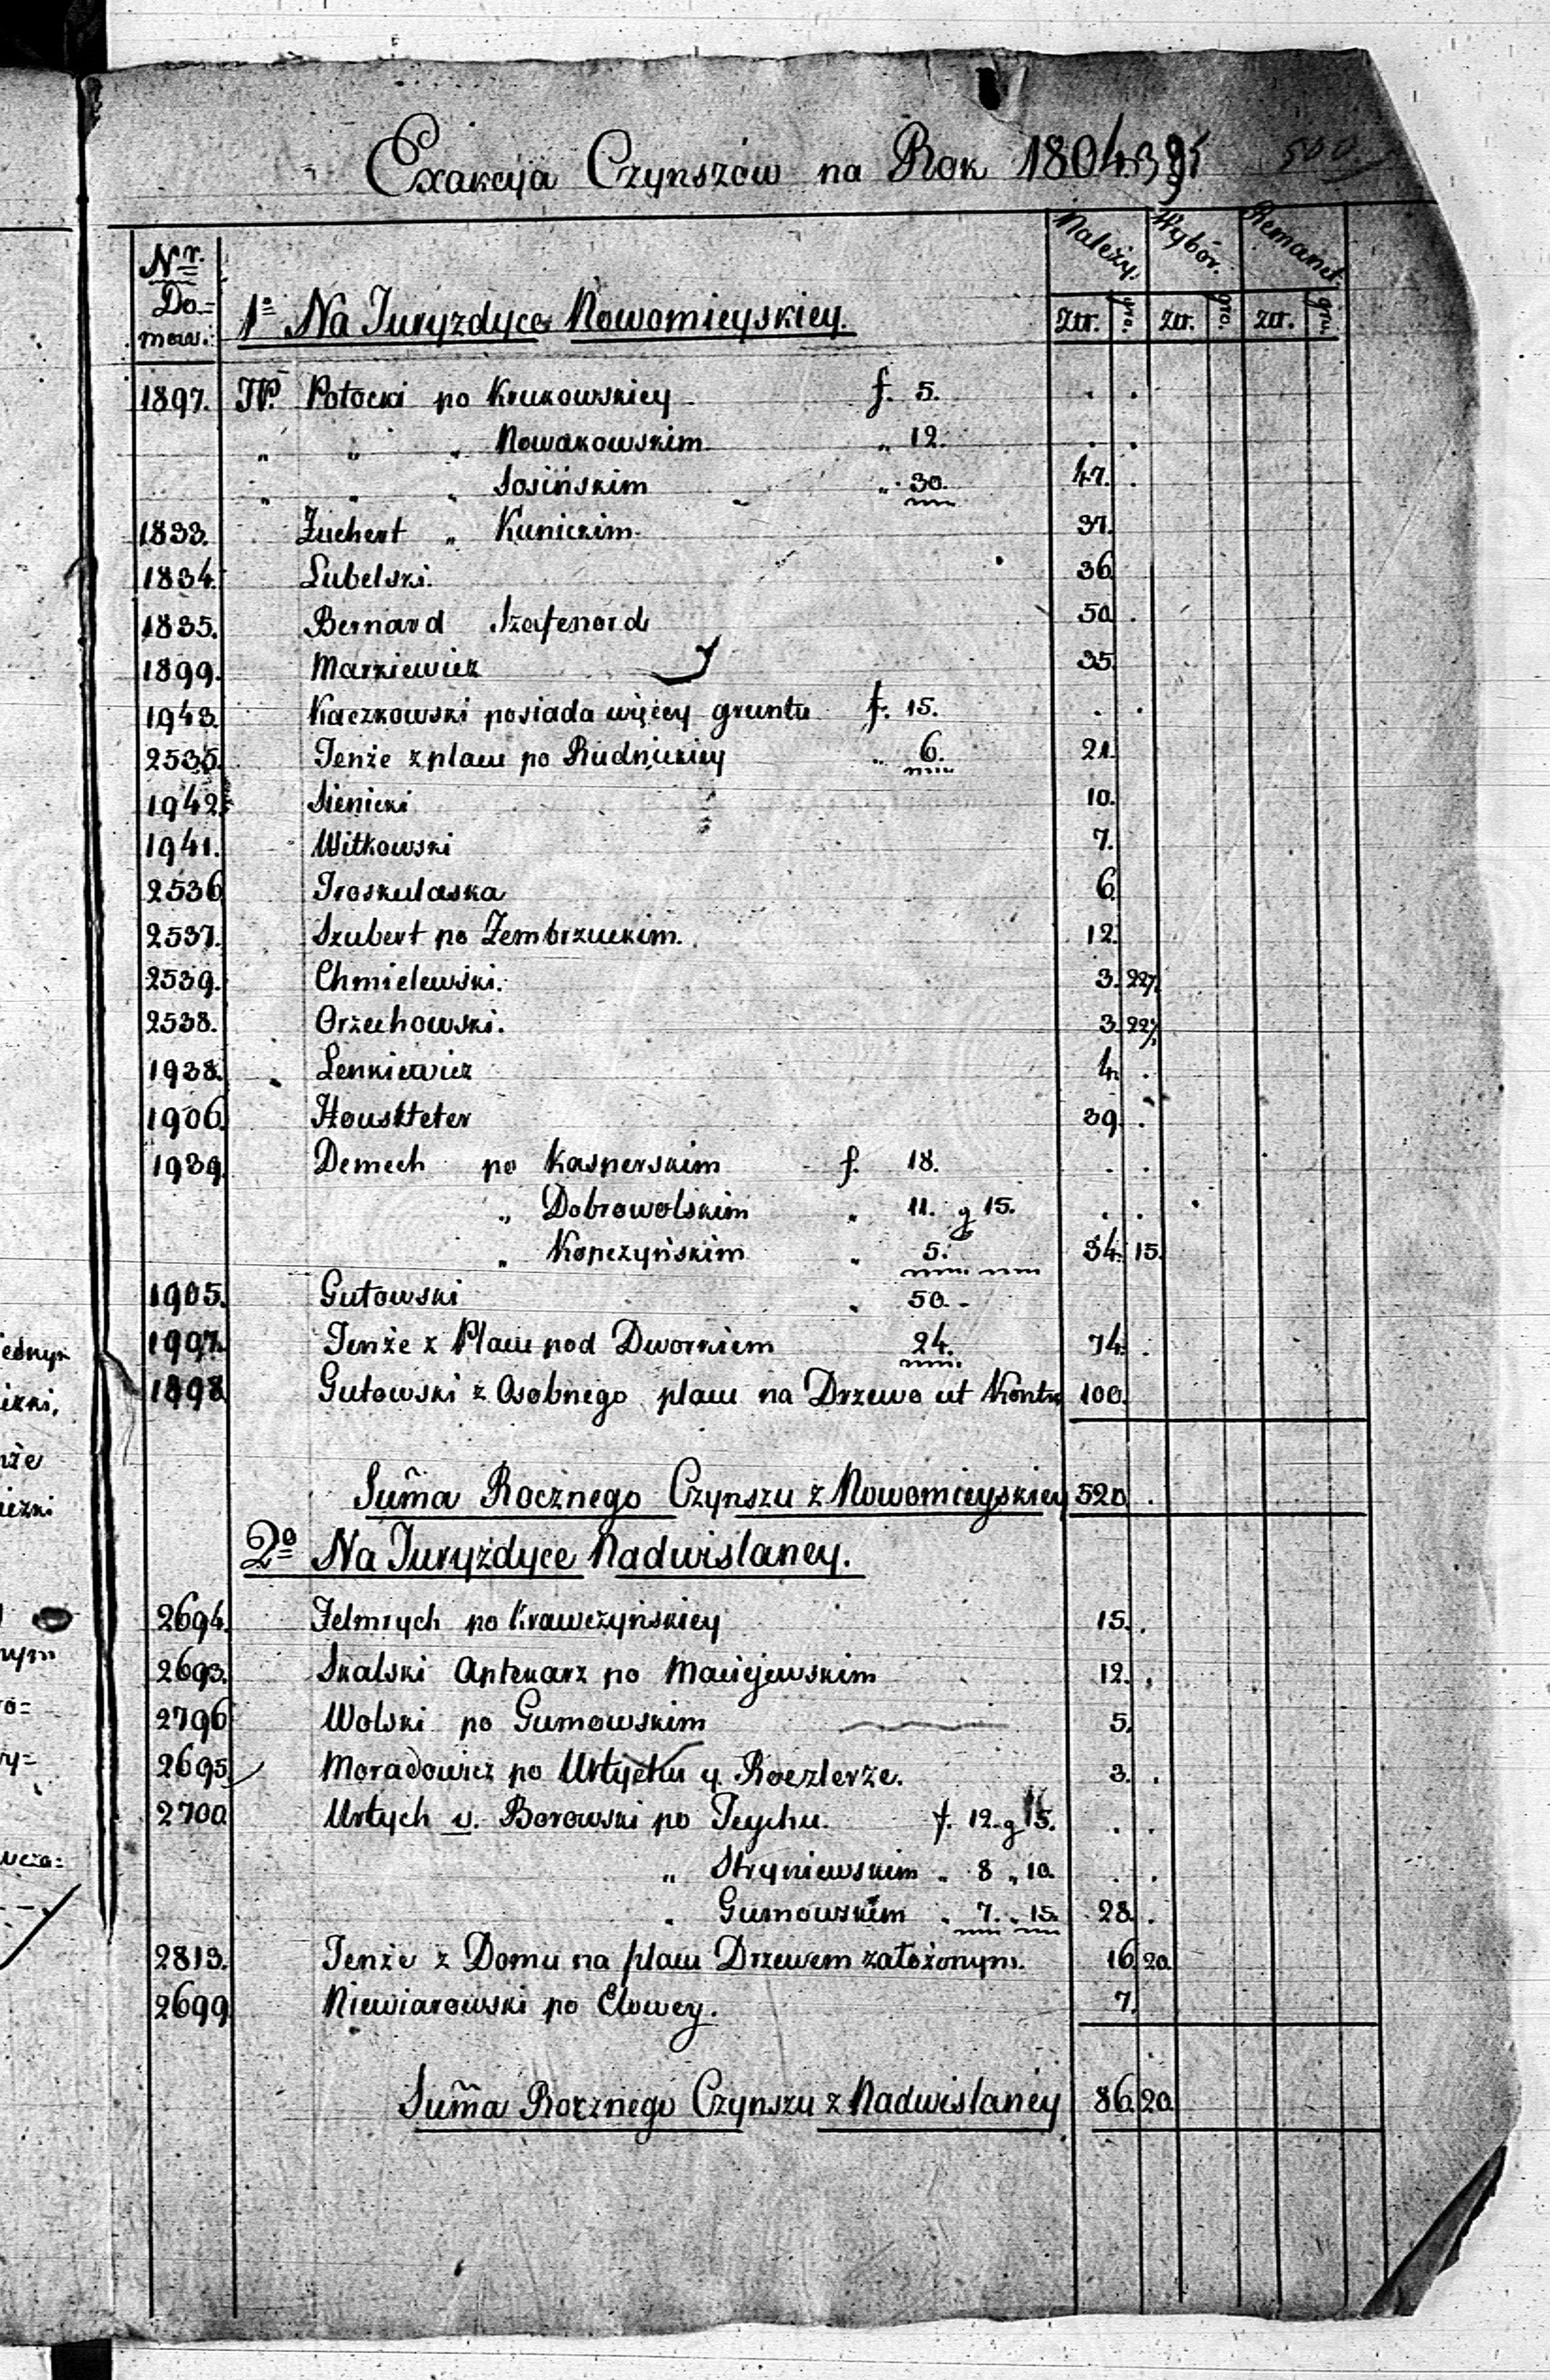 Exakcyja Czynszów na Rok 1804
Nr. Do=mow.: Należy. Wybór. Remanet.
1º Na Juryzdyce Nowomieyskiey. Złr. gro. złr. gro. złr. gru.
1897. JP. Potocki po Krukowskiey f. 5. . .
„ „ „ Nowakowskim „ 12. . .
„ „ „ Sosińskim „ 30. 47. .
1833. Zuchert „ Kunickim. 37.
1834. Lubelski. 36
1835. Bernard Szafenord 50 .
1899. Markiewicz 35
1943. Kaczkowski posiada więcey gruntu f. 15. . .
2535. Tenże z placu po Rudnickiey „ 6. 21.
1942. Sienicki 10.
1941. Witkowski 7.
2536 Troskulaska 6
2537. Szubert po Zembrzuckim. 12.
2539. Chmielewski. 3. 22½
2538. Orzechowski. 3. 22½
1938. Lenkiewicz 4. .
1906 Houskteter 39. .
1939. Demech po Kasperskim f. 18. . .
„ Dobrowolskim „ 11. g 15. . .
„ Kopczyńskim „ 5. 34. 15.
1905. Gutowski „ 50. -
1907. Tenże z Placu pod Dworkiem 24. 74. .
1898 Gutowski z Osobnego placu na Drzewo ut Kontr. 100.
Sum̃a Rocznego Czynszu z Nowomieyskiey 520 .
2º Na Juryzdyce Nadwislaney.
2694. Felmrych po Krawczyńskiey 15. .
2693. Skalski Aptekarz po Maciejewskim 12. .
2796 Wolski po Gumowskim 5.
2695 Moradowicz po Urtychu y Roezlerze. 3. .
2700 Urtych v. Borowski po Teychu. f. 12. g 15. . .
„ Stryniewskim „ 8 „ 10. . .
„ Gumowskim „ 7. „ 15. 28. .
2813. Tenże z Domu na placu Drzewem założonym. 16 20.
2699 Niewiarowski po Elowey. 7.
Sum̃a Rocznego Czynszu z Nadwislaney 86. 20.